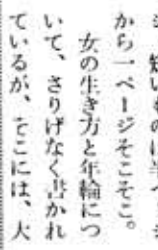 短いものは半ペ
から一ページそこそこ。
　女の生き方と年輪につ
いて、さりげなく書かれ
ているが、そこには、大